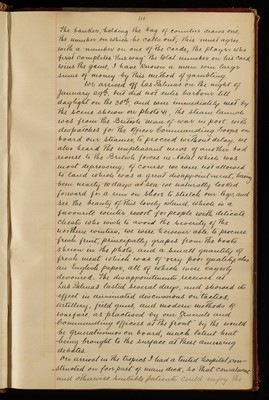 The banker, holding the bag of counters draws one,
the number on which he calls out, this must agree
with a number on one of the cards, the player who
first completes this way the total numbers on his card
wins the game, I have known a man win large
sums of money by this method of gambling.
We arrived off Las Palmas on the night of
January 29th, but did not enter harbour till
daylight on the 30th and were immediately met by
the scene shewn on plate 41, the steam launch
was from the British man of war in port, with
despatches for the Officer Commanding Troops on
board our steamer, to proceed without delay, we
also heard the unpleasant news of another bad
reverse to the British forces in Natal which was
most depressing, of course we were not allowed
to land which was a great disappointment, having
been nearly 10 days at sea we naturally looked
forward for a run on shore to stretch our legs, and
see the beauty of this lovely island which is a
favourite winter resort for people with delicate
chests who wish to avoid the severity of the
northern winters, we were however able to procure
fresh fruit, principally grapes from the boats
shewn in the photo, and a small quantity of
fresh meat which was of very poor quality also
an English paper, all of which were eagerly
devoured. The disappointments received at
Las Palmas lasted several days, and shewed its
effect in animated discussions on tactics,
artillery, field guns, and modern methods of
warfare, as practised by our Generals and
Commanding Officers at the front by the would
be generalissimos on board, much latent heat
being brought to the surface at these amusing
debates.
On arrival in the tropics I had a tented hospital con-
structed on fore part of main deck, so that convalescent
and otherwise suitable patients could enjoy the